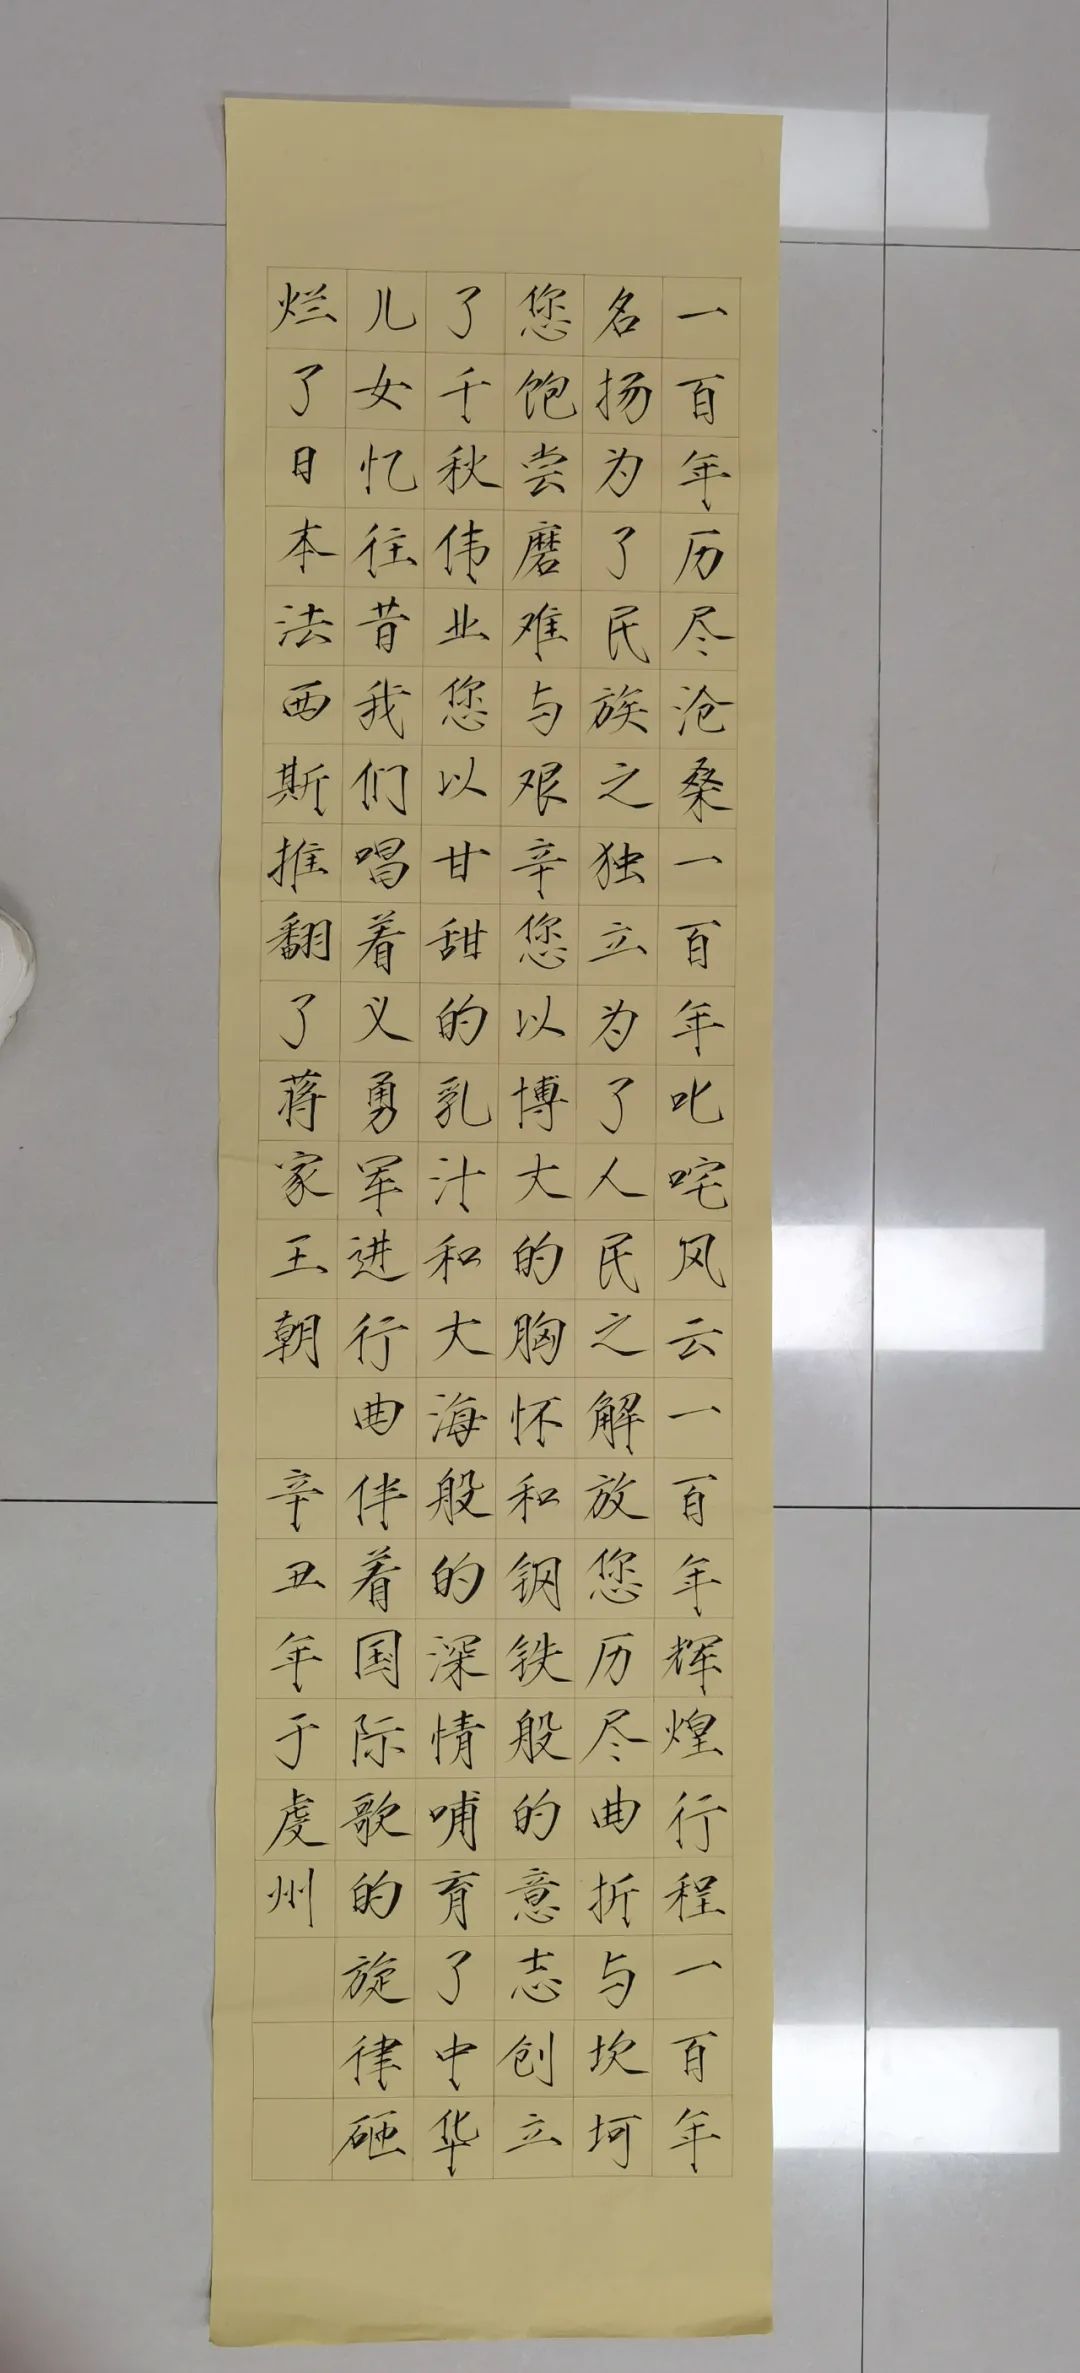 一百年历尽沧桑一百年叱咤风云一百年辉煌行程一百年
名扬为了民族之独立为了人民之解放您历尽曲折与坎坷
您饱尝磨难与艰辛您以博大的胸怀和钢铁般的意志创立
了千秋伟业您以甘甜的乳汁和大海般的深情哺育了中华
儿女忆往昔我们唱着义勇军进行曲伴着国际歌的旋律砸
烂了日本法西斯推翻了蒋家王朝 辛丑年于虔州